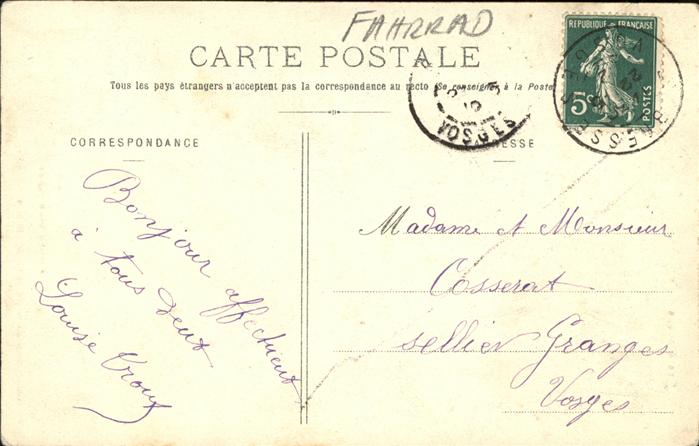 FAHRRAD
CARTE POSTALE
Tous les pays étrangers n'acceptent pas la correspondance au recto (Se renseigner à la Poste
REPUBLIQUE FRANÇAISE
5c
POSTES
VOSGES
CORRESPONDANCE
Bonjour affectueux
à tous deux
Louise
RESSE
Madame et Monsieur
Cosserat
sellier Granges
Vosges